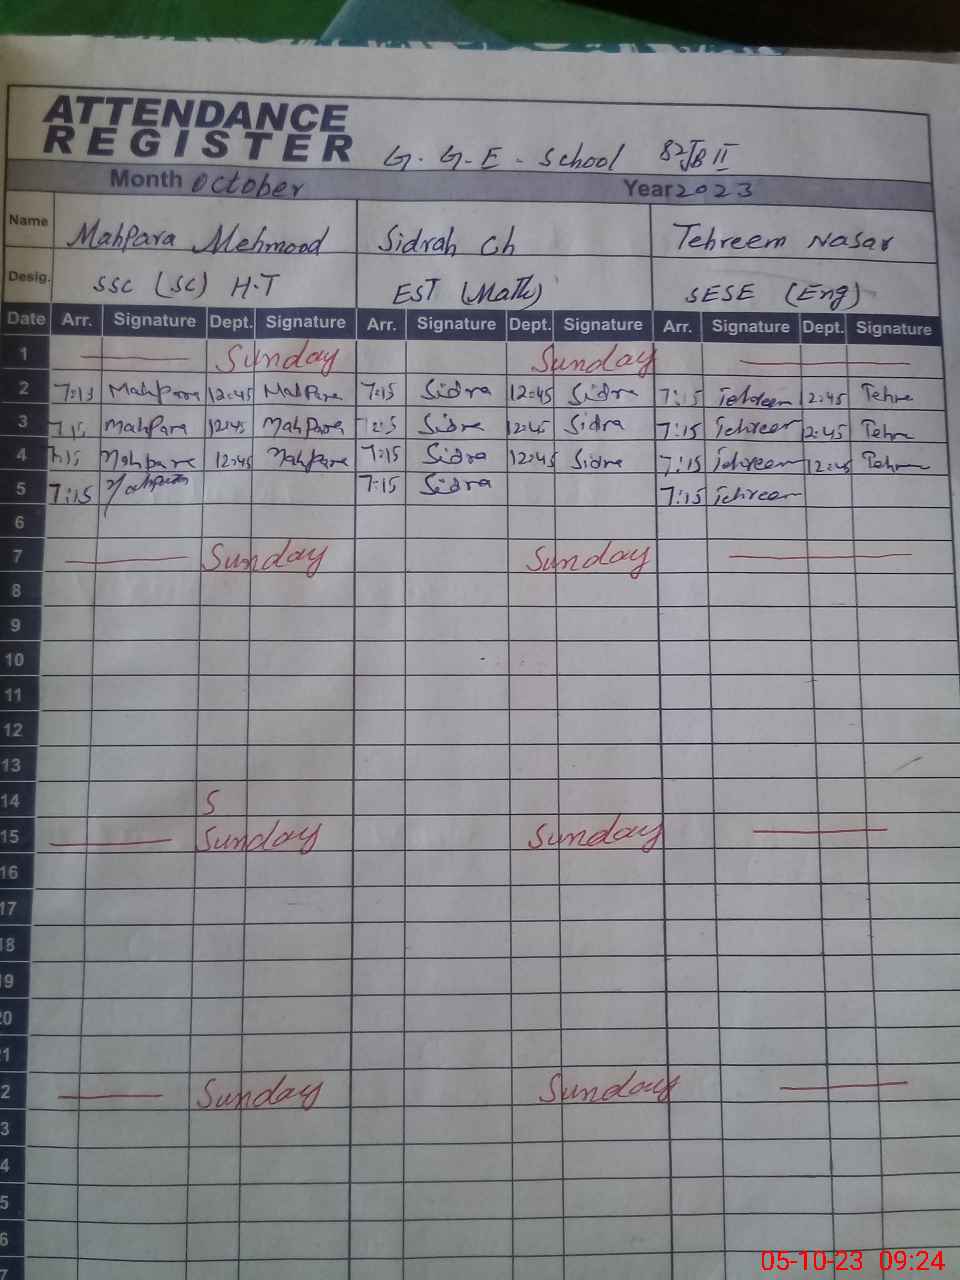 ATTENDANCE
REGISTER G. G. E - School 82 JB II
Month October Year 2023
Name Mahpara Mehmood Sidrah Ch Tehreem Nasar
Desig. SSC (SC) H.T EST (Math) SESE (Eng)
Date Arr. Signature Dept. Signature Arr. Signature Dept. Signature Arr. Signature Dept. Signature
1 Sunday Sunday
2 7:13 Mahpara 12:45 Mahpara 7:15 Sidra 12:45 Sidra 7:15 Tehreem 12:45 Tehre
3 7:15 Mahpara 12:45 Mahpara 7:15 Sidra 12:45 Sidra 7:15 Tehreem 12:45 Tehre
4 7:15 Mahpara 12:45 Mahpara 7:15 Sidra 12:45 Sidra 7:15 Tehreem 12:45 Tehre
5 7:15 Mahpara 7:15 Sidra 7:15 Tehreem
6
7 Sunday Sunday
8
9
10
11
12
13
14 S
15 Sunday Sunday
16
17
18
19
20
21
2 Sunday Sunday
3
4
5
6
7
05-10-23 09:24